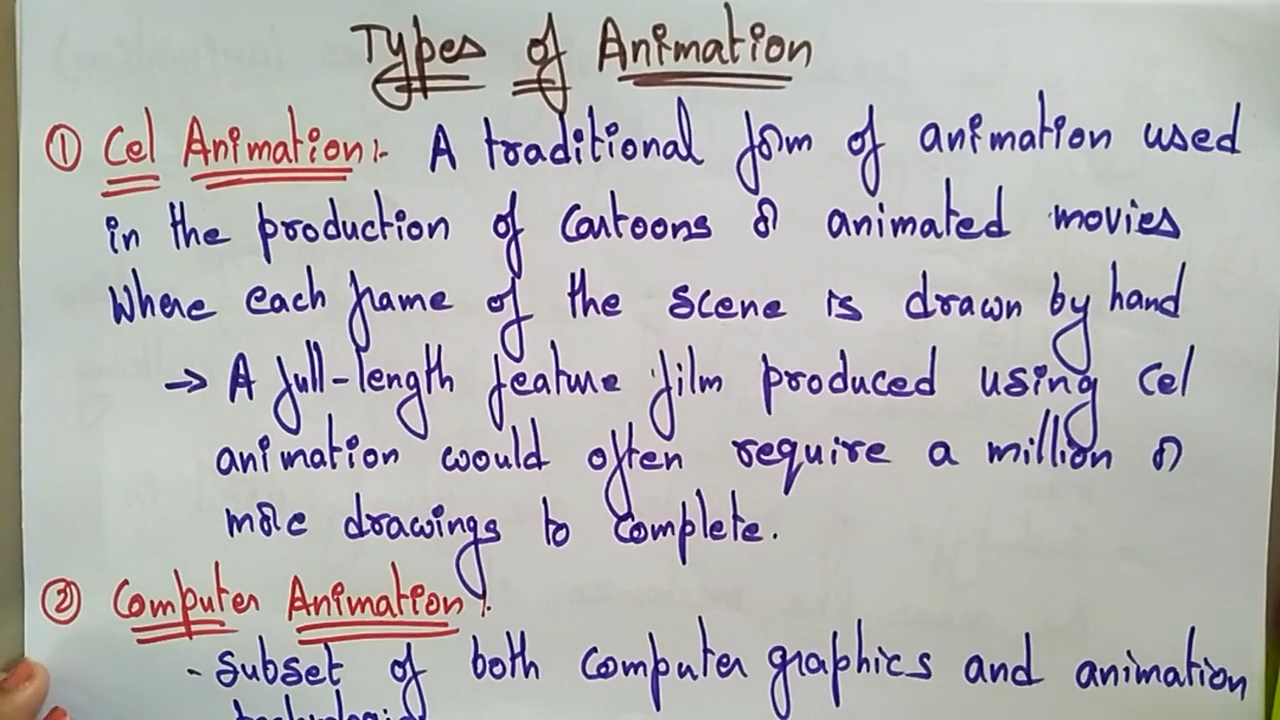 Types of Animation
① Cel Animation:- A traditional form of animation used
in the production of cartoons or animated movies
Where each frame of the scene is drawn by hand
→ A full-length feature film produced using cel
animation would often require a million or
more drawings to complete.
② Computer Animation:
- Subset of both computer graphics and animation